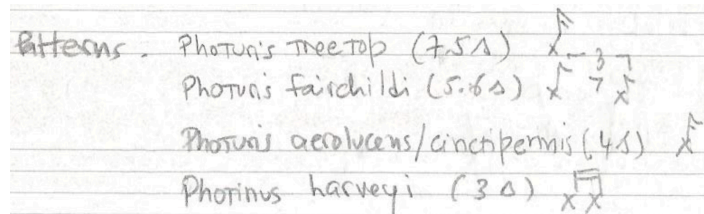 Patterns. Photuris Treetop (7.5s) 3
Photuris fairchildi (5.6s)
Photuris aerolucens/cinctipennis (4s)
Photinus harveyi (3s)